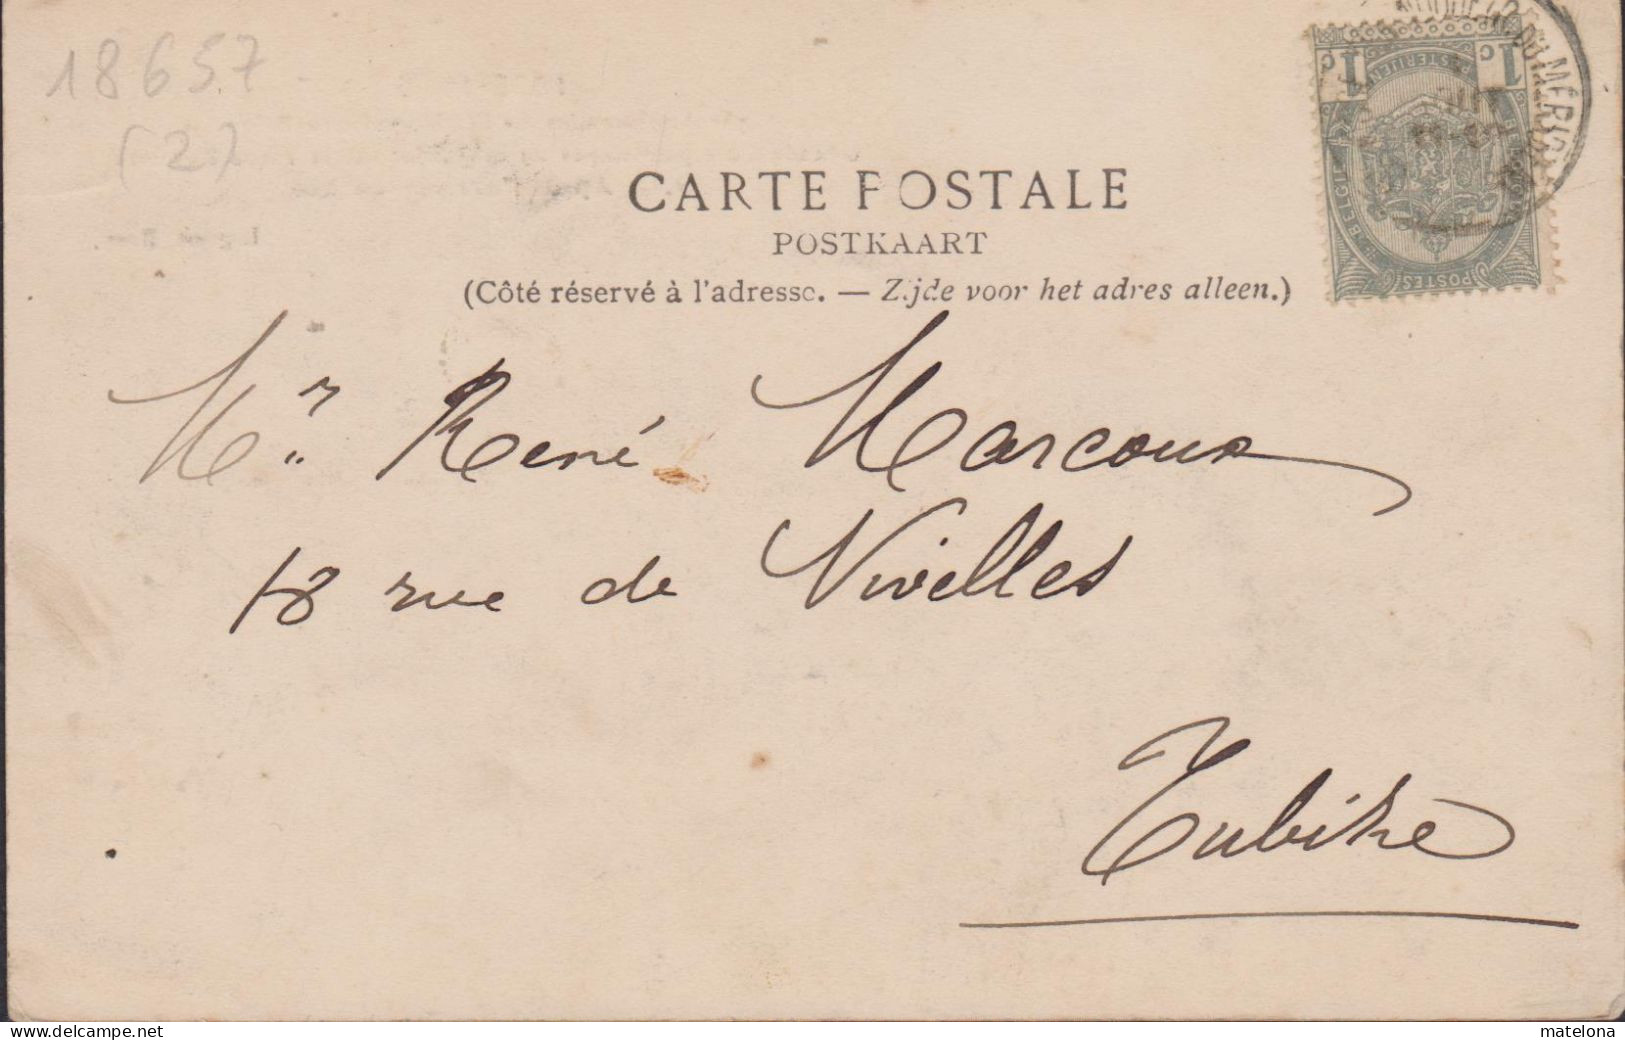 18657
(2)
CARTE POSTALE
POSTKAART
(Côté réservé à l'adresse. — Zijde voor het adres alleen.)
1 c
c 1
POSTERIJEN
BELGIË
BELGIQUE
POSTES
Mr René Marcoux
18 rue de Nivelles
Tubize
www.delcampe.net
matelona